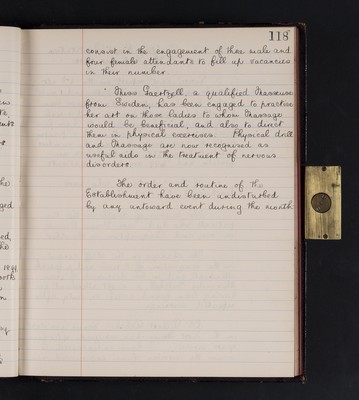 118
consist in the engagement of three male and
four female attendants to fill up vacancies
in their number.
Miss a qualified Masseuse
from Sweden, has been engaged to practise
her art on those ladies to whom Massage
would be beneficial, and also to direct
them in physical exercises. Physical drill
and Massage are now recognised as
useful aids in the treatment of nervous
disorders.
The order and routine of the
Establishment have been undisturbed
by any untoward event during the month